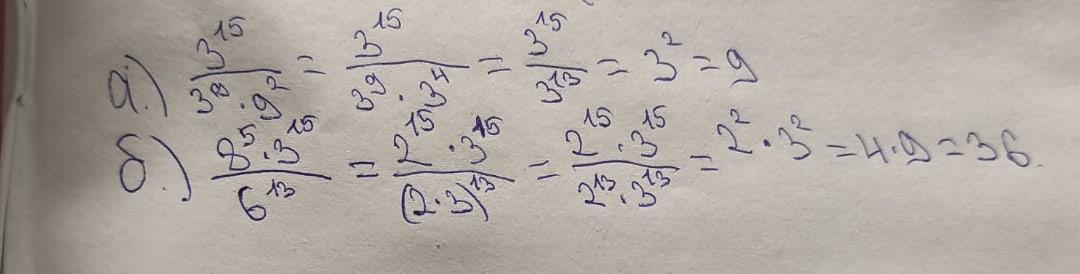 а.) 3^15 / (3^9 · 9^2) = 3^15 / (3^9 · 3^4) = 3^15 / 3^13 = 3^2 = 9
б.) (8^5 · 3^15) / 6^13 = (2^15 · 3^15) / (2·3)^13 = (2^15 · 3^15) / (2^13 · 3^13) = 2^2 · 3^2 = 4·9 = 36.